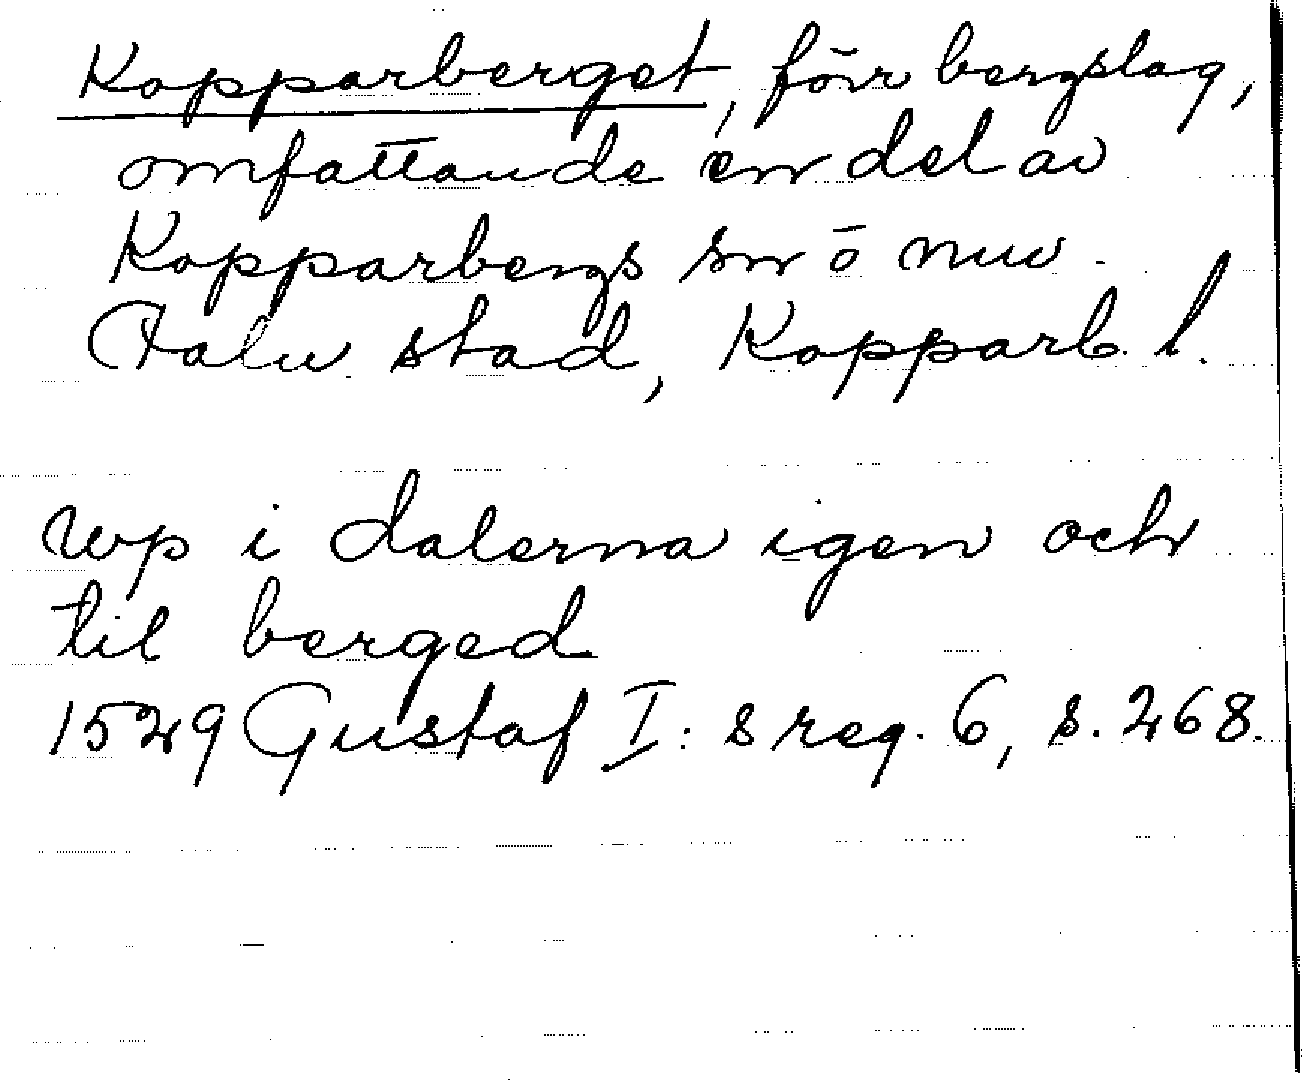 Kopparberget, förr bergslag,
omfattande en del av
Kopparbergs sn o nuv.
Falu stad, Kopparb. l.
wp i dalerna igen och
til berged
1529 Gustaf I:s reg. 6, s. 268.